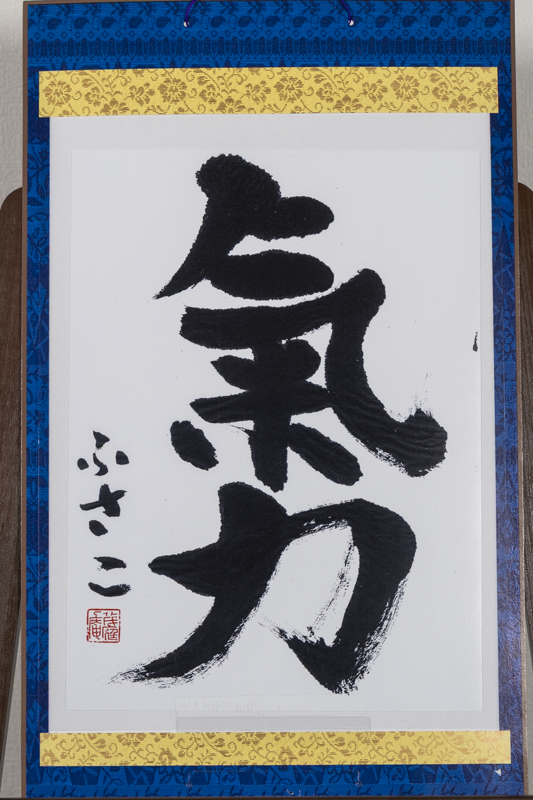 氣力
ふさこ